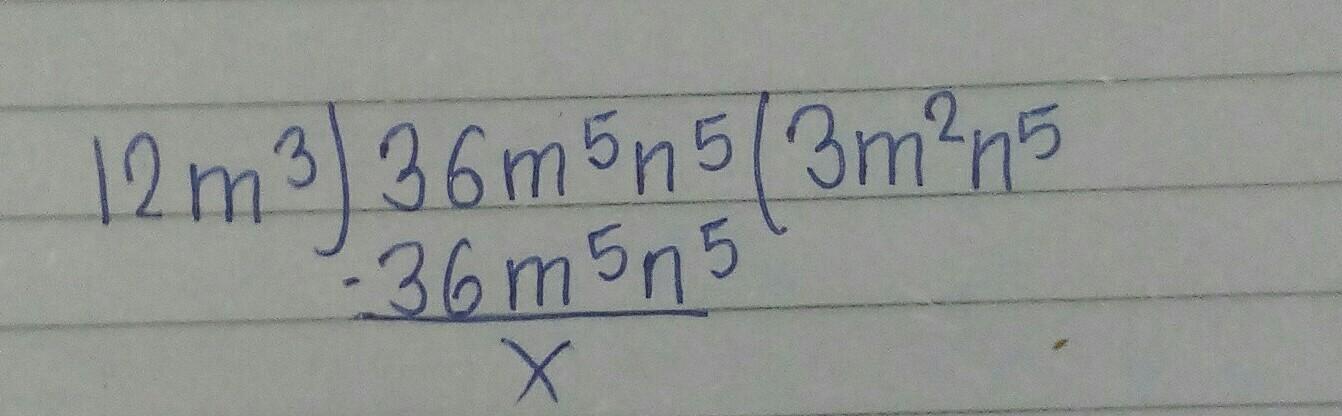 12m³)36m⁵n⁵(3m²n⁵
-36m⁵n⁵
x